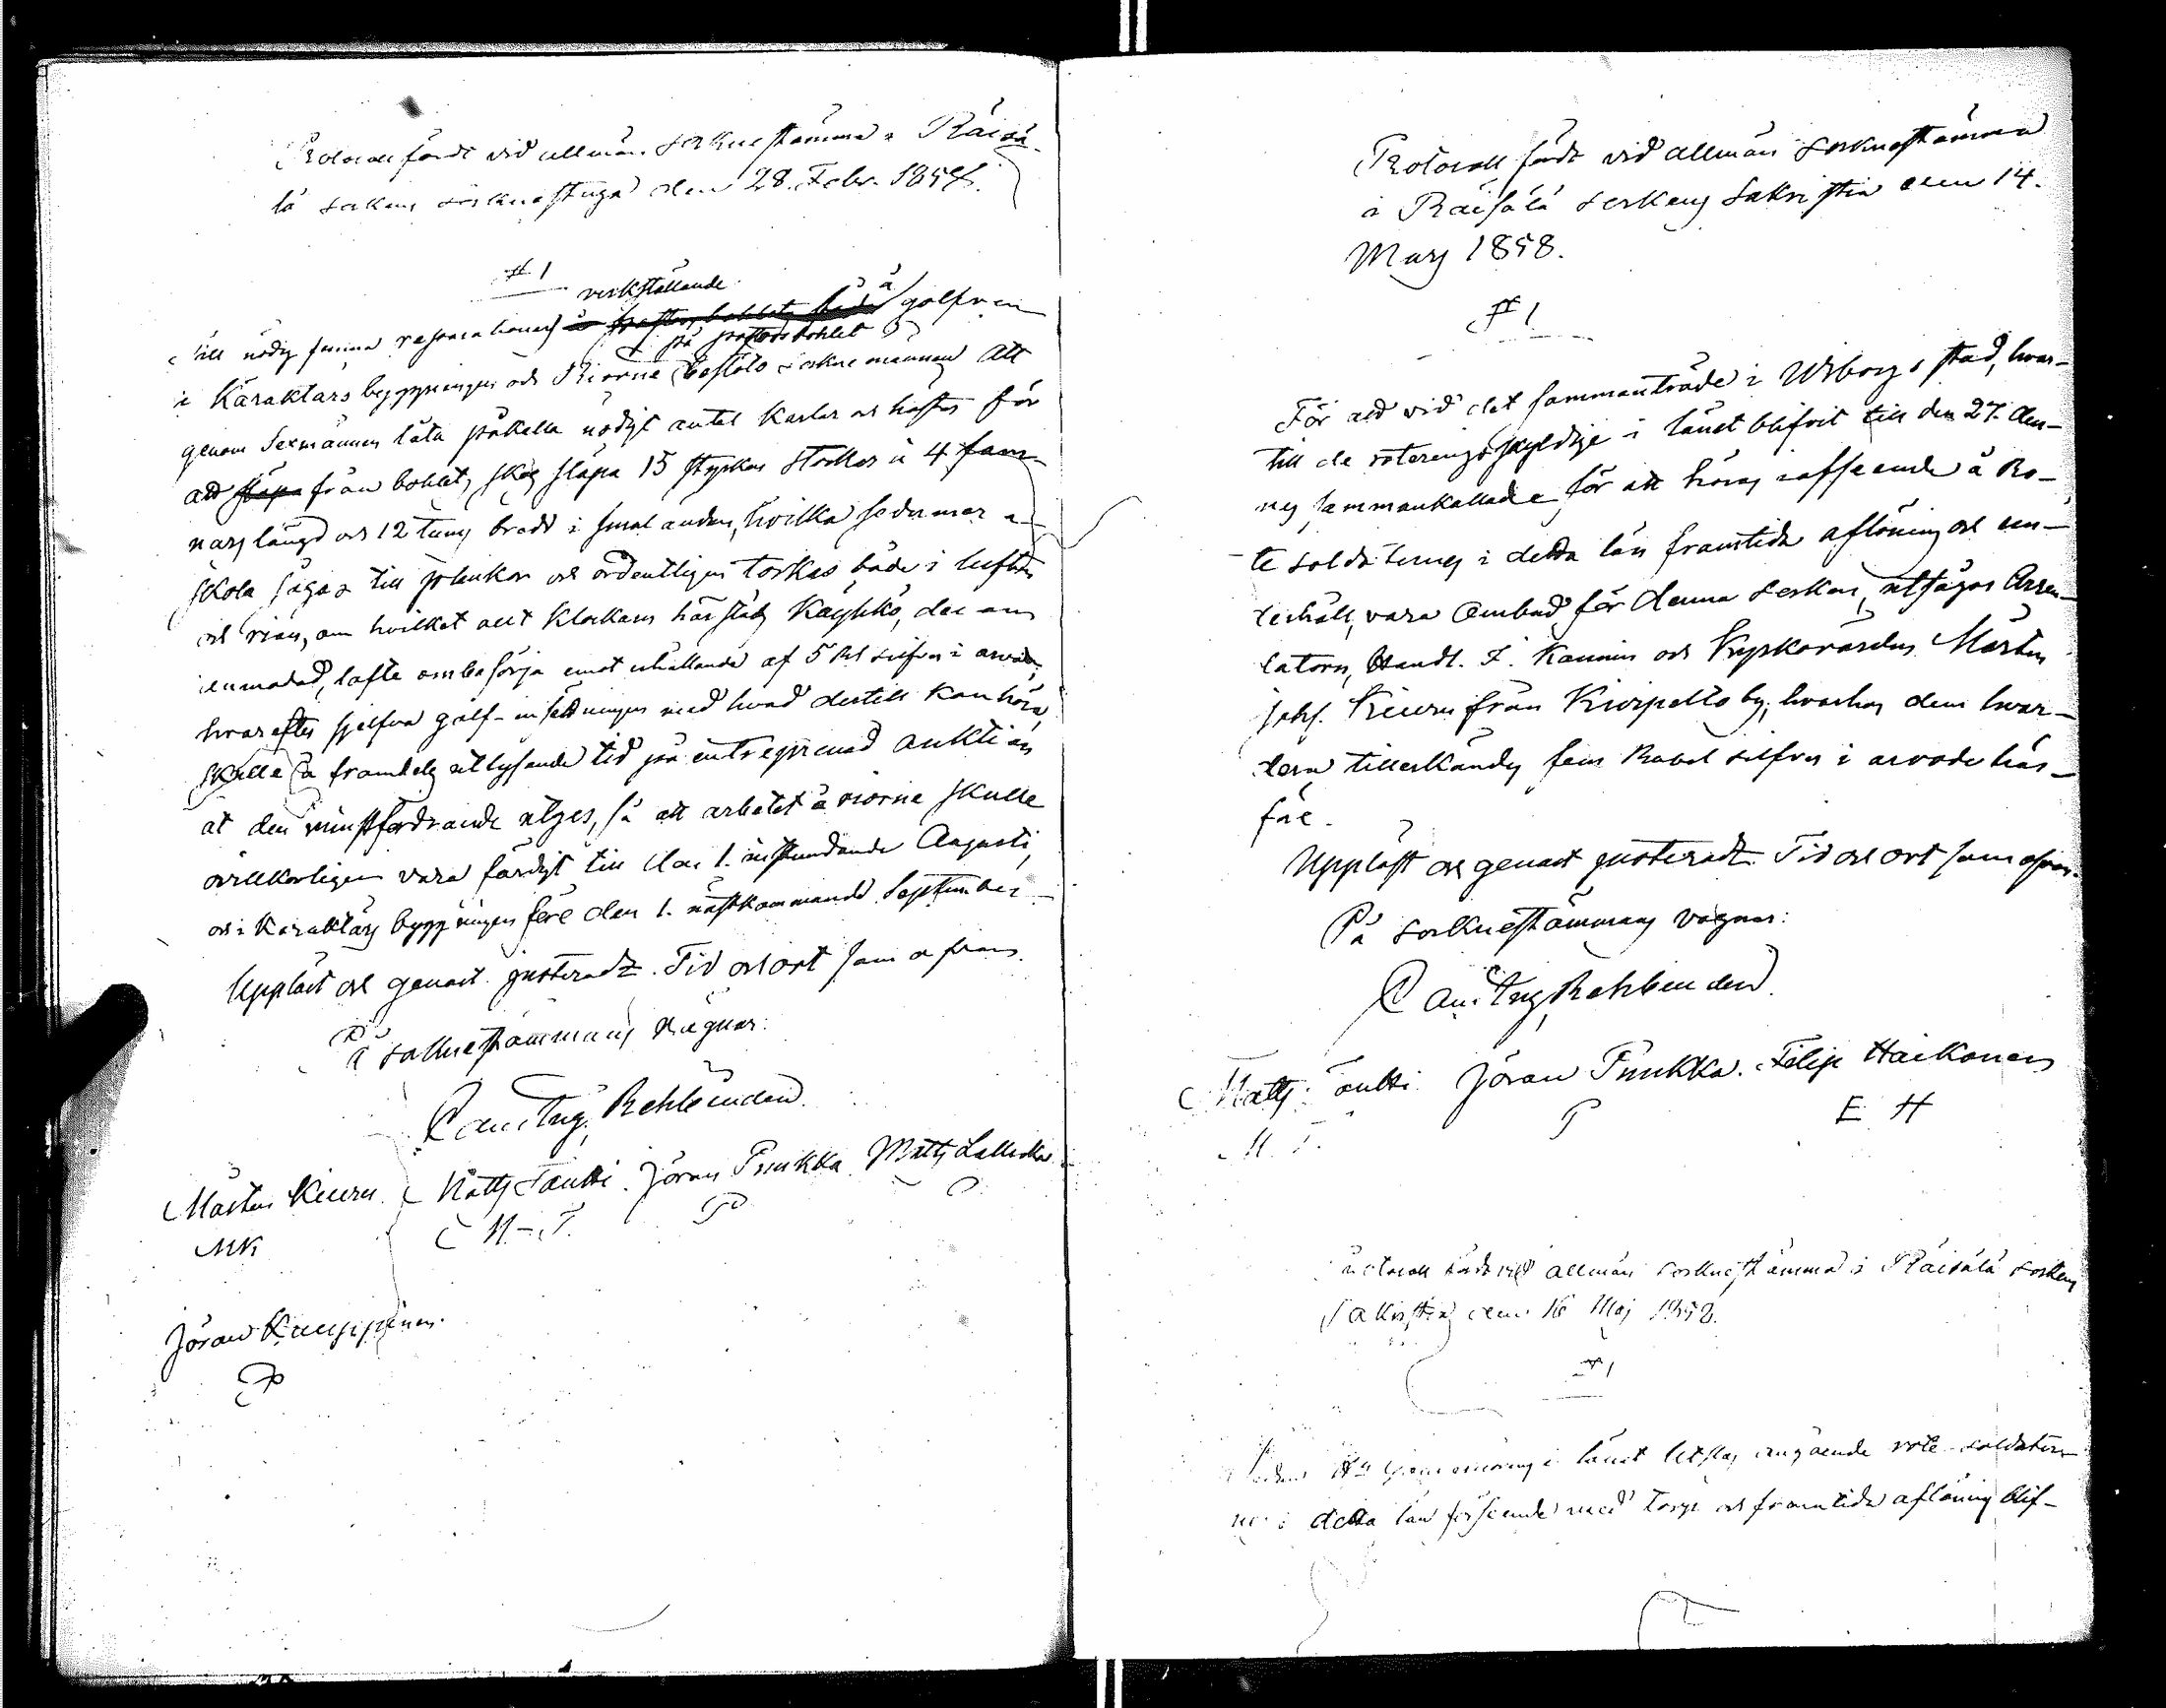 Protocoll fördt vid allmän sockne stämma i Räisä-
lä sockens sockne stuga den 28. Febr. 1858.
# 1
verkställande
Till nödig funna reparationers å golfven
på prostebohlet
i Karaktärs byggningen och Riorne beslöto sockne männen att
genom Sexmännen låta påkalla nödigt antal karlar och hästar för
att från bohlets skog släpa 15 stycken stockar à 4 fam-
nars längd och 12 tums bredd i smal andan, hvilka sedermera
skola sågas till plankor och ordentligen torkas både i luften
och rian, om hvilket allt Klockaren härstädes Käyhkö, der om
anmodad, lofte ombesörja emot erhållande af 5 Rub. silfver i arvode,
hvarefter sjelfva golf-insättningen med hvad dertill kan höra,
skulle å framdeles utlysande tid på entreprenad auktion
åt den minstfordrande utges, så att arbetet å riorne skulle
ovillkorligen vara färdigt till den 1. instundande Augusti,
och i Karaktärs byggningen före den 1. nästkommande September.
Uppläst och genast justeradt. Tid och ort som ofvan.
På sockne stämmans vägnar:
Const. Aug. Rehbinder.
Mårten Kiuru. Matts Tantti. Jöran Punkka. Matts Lallukka
MK M-T. P
Jöran Kauppinen.
Protocoll fördt vid allmän socknestämma
i Räisälä sockens Sakristia den 14.
Mars 1858.
# 1
För att vid det sammanträde i Wiborgs stad, hvar-
till de roteringsskyldige i länet blifvit till den 27. den-
nes sammankallade för att höras i afseende å Ro-
te soldaternes i detta län framtida aflöning och un-
derhåll, vara Ombud för denna socken, utsågos Arren-
datorn, Handl. I. Kannin och Kyrkovärden Mårten
Kiuru från Kiurpello by, hvarhos dem hvar-
dera tillerkändes fem Rubel silfver i arvode här-
före.
Uppläst och genast justeradt. Tid och ort som ofvan.
På socknestämmans vägnar:
Const. Aug. Rehbinder.
Matts Tantti. Jöran Punkka. Filip Haikonen
M. T. P E H
Protocoll fördt vid allmän socknestämma i Räisälä sockens
Sakristia den 16 Maj 1858.
# 1
i länet utslag angående rote-soldater-
ne i detta län förseende med torp och framtida aflöning blif-